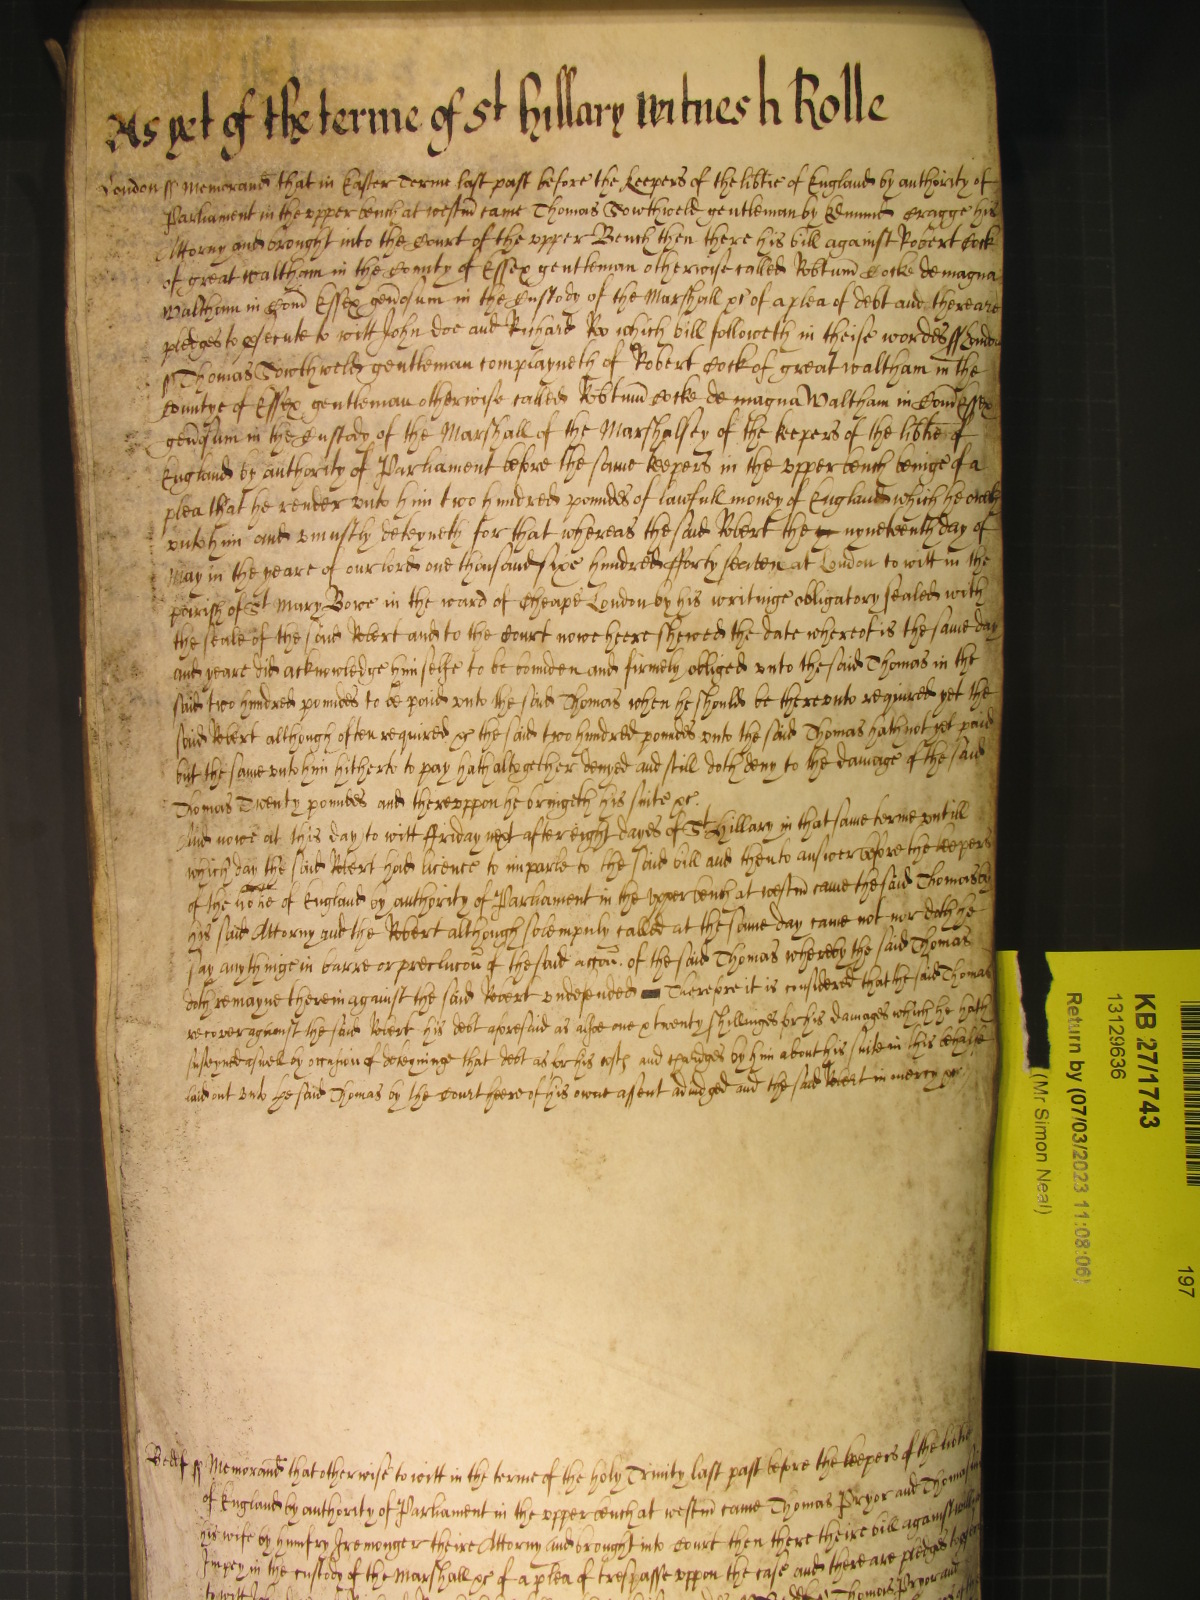 As yet of the terme of St Hillary Witnes h Rolle
London ss Memorand that in Easter Terme last past before the Keepers of the libtie of England by authority of
Parliament in the upper bench at westm came Thomas Sowthwell gentleman by Edmund Cragge his
Attorny and brought into the Court of the upper Bench then there his bill against Robert Cock
of great waltham in the County of Essex gentleman otherwise called Robtum Cocke de magna
Waltham in Com Essex genosum in the Custody of the Marshall &c of a plea of debt and there are
pledges to psecute to witt John doe and Richard Roo which bill followeth in theise wordes ss London
ss Thomas Sowthwell gentleman complayneth of Robert Cock of great waltham in the
Countye of Essex gentleman otherwise called Robtum Cocke de magna Waltham in Com Essex
genosum in the Custody of the Marshall of the Marshalsey of the keepers of the libtie of
England by authority of Parliament before the same keepers in the upper bench beinge of a
plea that he render unto him two hundred poundes of lawfull money of England which he oweth
unto him and uniustly deteyneth for that whereas the said Robert the nyneteenth day of
May in the yeare of our lord one thousand sixe hundred fforty seaven at London to witt in the
parish of St Mary Bowe in the ward of Cheape London by his writinge obligatory sealed with
the seale of the said Robert and to the Court nowe heere shewed the date whereof is the same day
and yeare did acknowledge himselfe to be bounden and firmely obliged unto the said Thomas in the
said two hundred poundes to be paid unto the said Thomas when he should be thereunto required yet the
said Robert although often required &c the said two hundred poundes unto the said Thomas hath not yet paid
but the same unto him hitherto to pay hath altogether denyed and still doth deny to the damage of the said
Thomas Twenty poundes and thereuppon he bringeth his suite &c.
And nowe at this day to witt ffriday next after eight dayes of St Hillary in that same terme untill
which day the said Robert had licence to imparle to the said bill and then to answer before the keepers
of the libtie of England by authority of Parliament in the upper bench at westm came the said Thomas by
his said Attorny and the Robert although solempnly called at the same day came not nor doth he
say anythinge in barre or preclucon of the said accon of the said Thomas whereby the said Thomas
doth remayne therein against the said Robert undefended Therefore it is considered that the said Thomas
recover against the said Robert his debt aforesaid as alsoe one & twenty shillinges for his damages which he hath
susteyned aswell by occasion of deteyninge that debt as for his costs and chardges by him about his suite in this behalfe
laid out unto the said Thomas by the Court heere of his owne assent adiudged and the said Robert in mercy &c
Bedf ss Memorand that otherwise to witt in the terme of the holy Trinity last past before the keepers of the libtie
of England by authority of Parliament in the upper bench at westm came Thomas Pryor and Thomasin
his wife by Humfry Iremonger theire Attorny and brought into Court then there theire bill against
Impey in the custody of the Marshall &c of a plea of trespasse uppon the case and there are pledges to
Thomas Pryor and
KB 27/1743
13129636
Return by (07/03/2023 11:08:06)
(Mr Simon Neal)
197